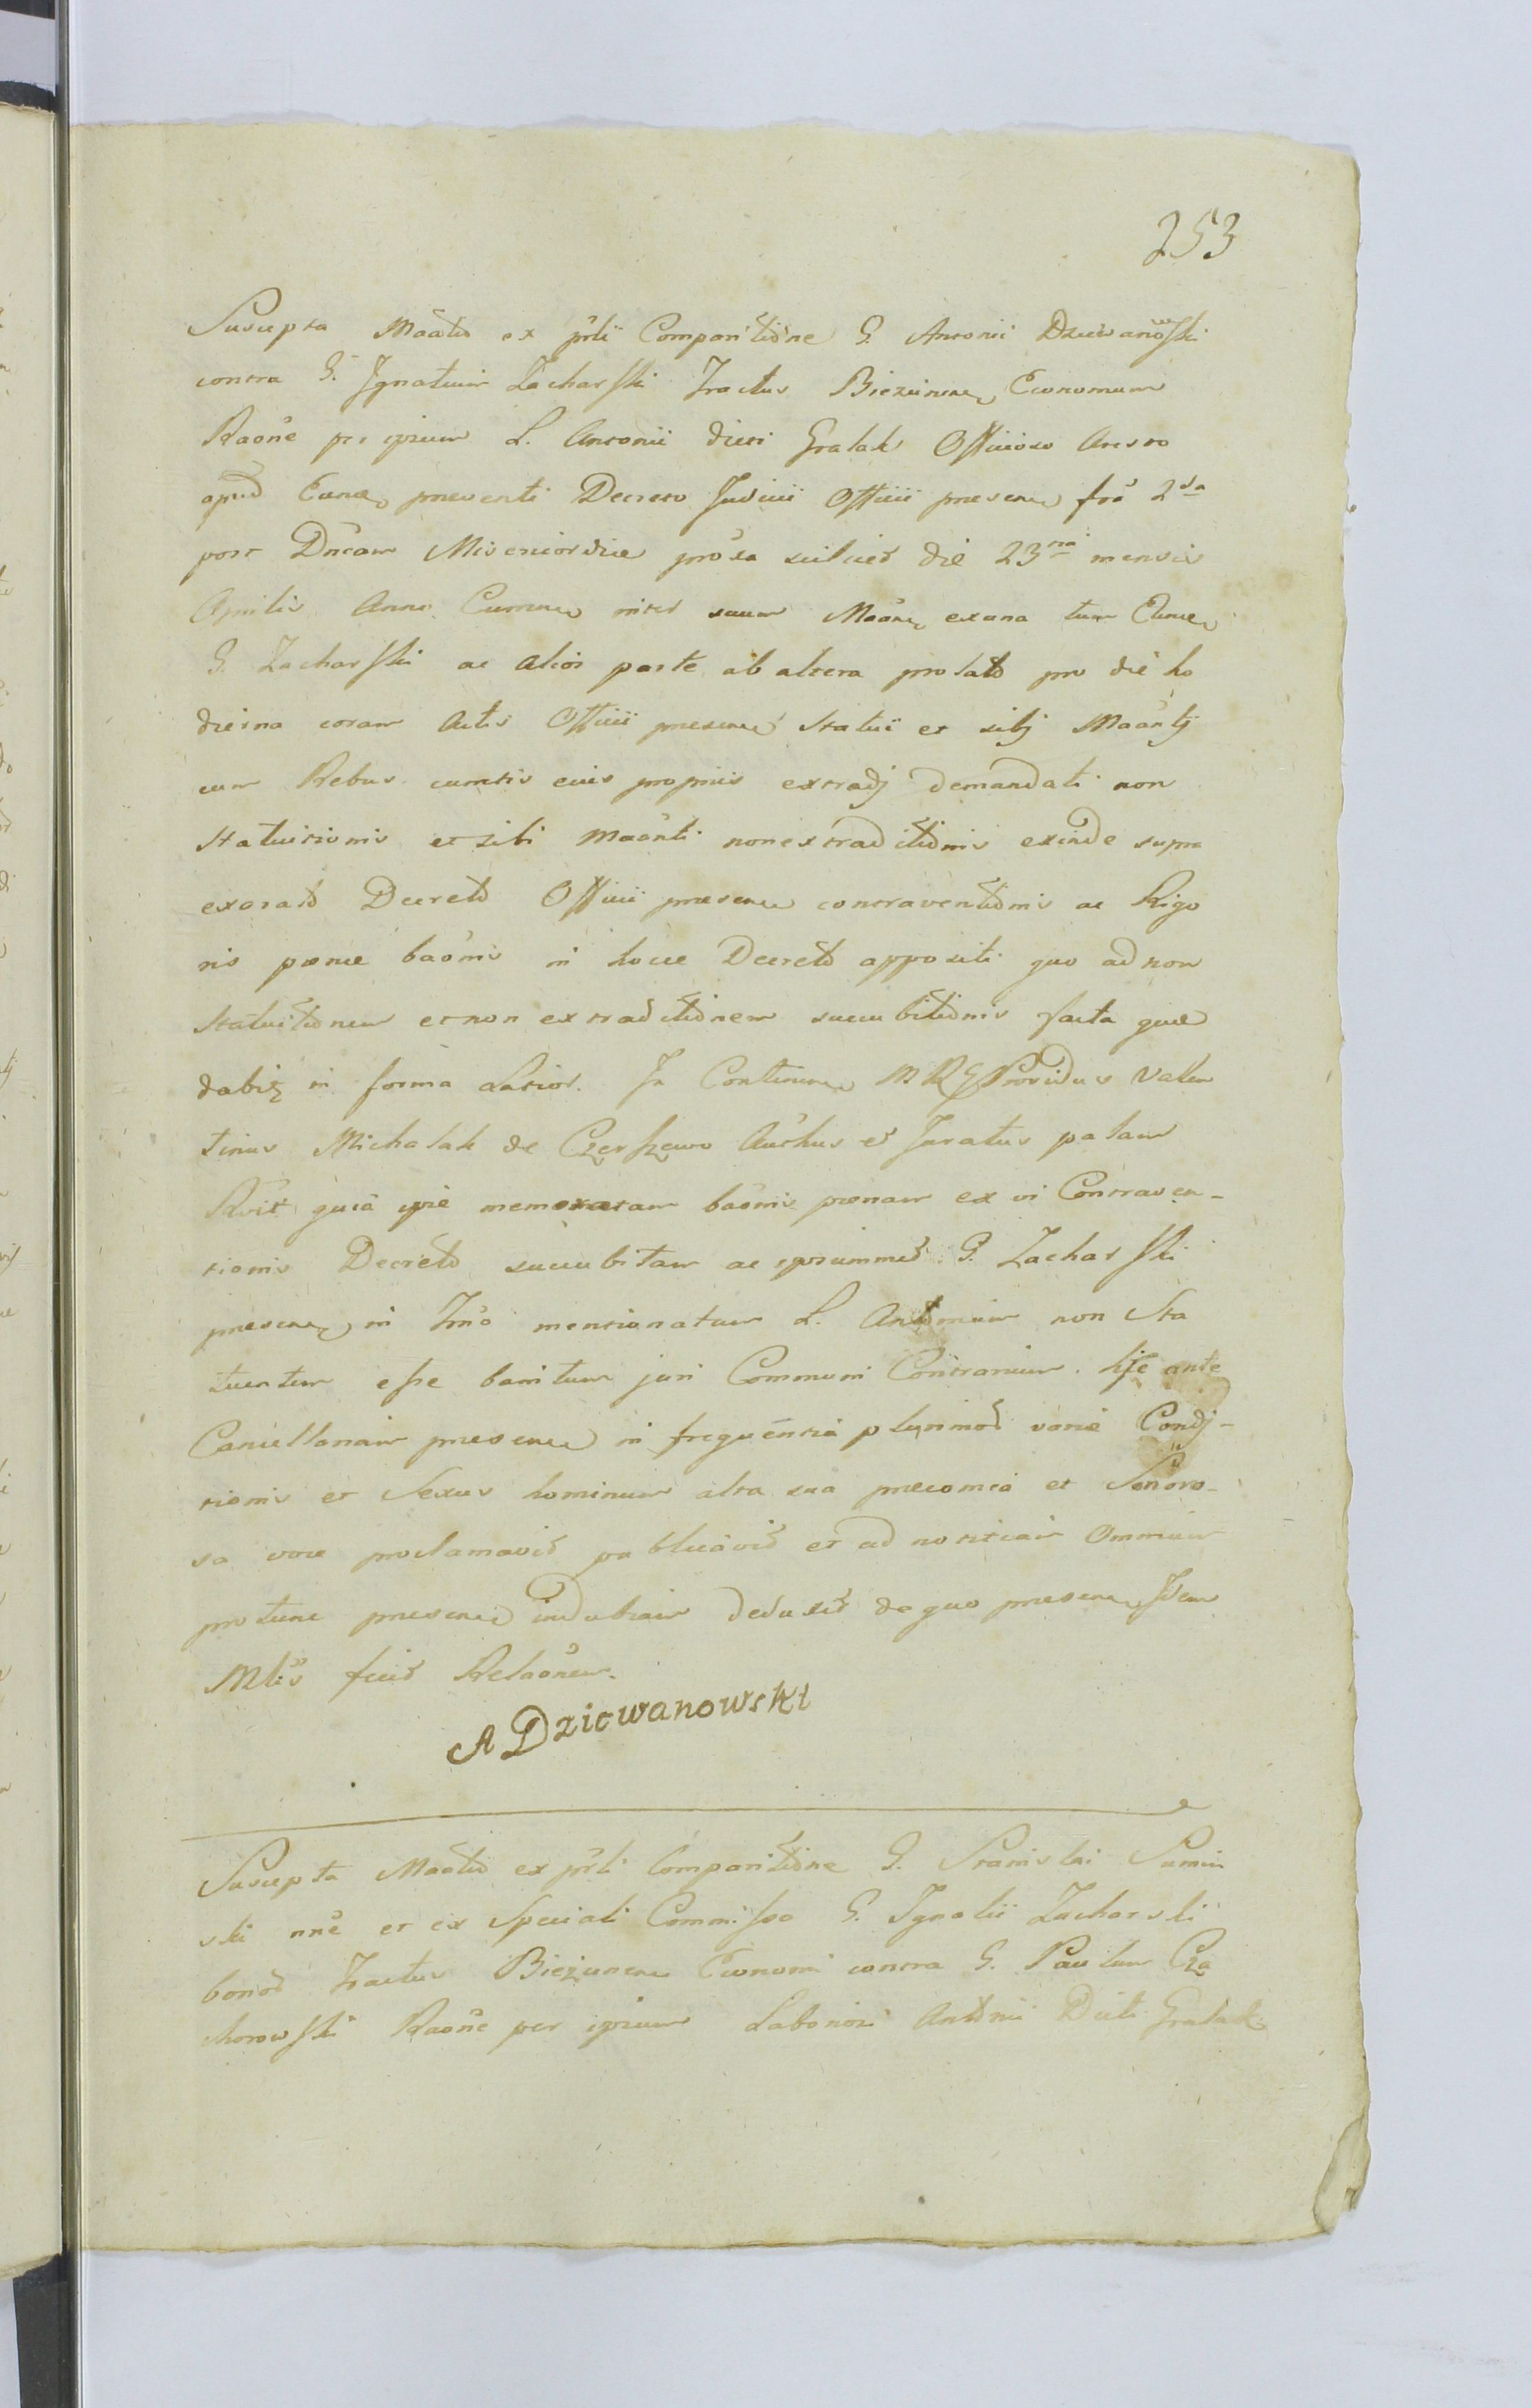 253
Suscepta Māātō ex pr̄li Comparitiōne G. Antonii Dziewanowski
contra G. Ignatium Zacharski Tractus Biezunen Economum
Raōne per ipsum L. Antonii dicti Gralak Officioso Aresto
apud Eund preventi Decreto Judicii Officii presen frā 2da
post Dn̄cam Misericordiae prōxa scilicet die 23tia mensis
Aprilis Anni Curren inter suum Māān ex una tum Eund
G. Zacharski ac alios parte ab altera prolatō pro die ho
dierna coram Actis Officii presen Statui et sibj Māāntj
cum Rebus cunctis eius propriis extradj demandati non
statuitionis et sibi Māānti nonextraditiōnis exinde supra
exaratō Decretō Officii presen contraventiōnis ac Rigo
ris poenae baōnis in hocce Decretō appositi quo ad non
statuitiōnem et non extraditiōnem succubitiōnis facta quae
dabit in forma Latior. In Continen MRG Providus Valen
tinus Michalak de Czerszewo Auc̄hus et Juratus palam
R̄vit quia ipse memoratam baōnis poenam ex vi Contraven-
tionis Decretō succubitam ac ipsummet G. Zacharski
presen in Tn̄o mentionatum L. Antonium non Sta
tuentem esse banitum juri Communi Contrarium. hic ante
Cancellariam presen in frequentia plurimor variae Condj-
tionis et Sexus hominum alta sua praeconica et Sonoro-
sa voce proclamavit publicavit et ad notitiam Omnium
protunc presen indubiam deduxit de quo presen Idem
Mlis fecit Relaōnem.
A Dziewanowski
Suscepta Māātō ex pr̄li Comparitiōne G. Stanislai Sumin
ski nn̄e et ex Speciali Commisso G. Ignatii Zacharski
bonor Tractus Bieżunen Economi contra G. Paulum Cza
chorowski Raōne per ipsum Laboriosi Antōnii Dicti Gralak